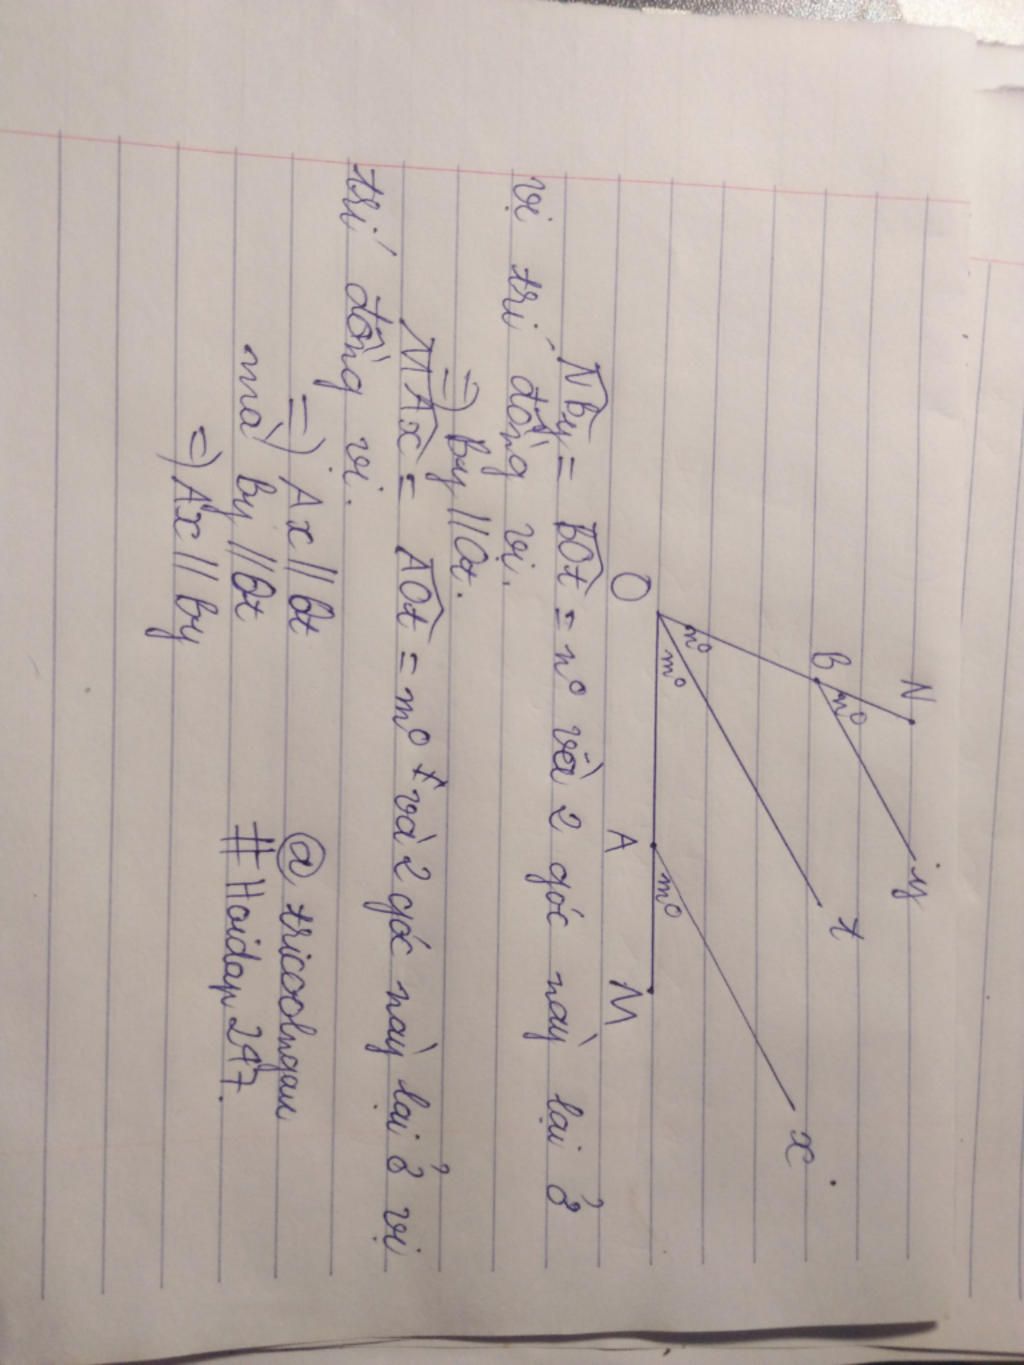 N
y
B
n°
t
n°
m°
x
m°
O
A
M
NBy = BOt = n° và 2 góc này lại ở
vị trí đồng vị.
=) By // Ot.
MAx = AOt = m° và 2 góc này lại ở vị
trí đồng vị.
=) Ax // Ot
mà By // Ot
=) Ax // By
@ tricoolngau
# Hoidap 247.